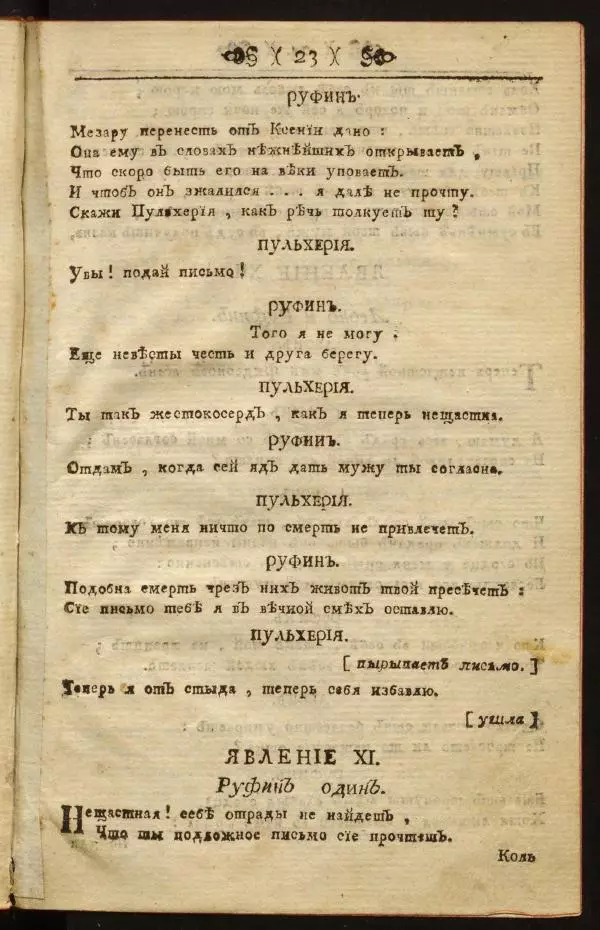 )( 23 )(
РУФИНЪ.
Мезару перенесть отъ Ксеніи дано:
Она ему въ словахъ нѣжнѣйшихъ открываетъ,
Что скоро быть его на вѣки уповаетъ.
И чтобъ онъ зжалился . . . я далѣ не прочту.
Скажи Пульхерія, какъ рѣчь толкуетъ ту?
ПУЛЬХЕРІЯ.
Увы! подай письмо!
РУФИНЪ.
Того я не могу.
Еще невѣсты честь и друга берегу.
ПУЛЬХЕРІЯ.
Ты такъ жестокосердъ, какъ я теперь нещастна.
РУФИНЪ.
Отдамъ, когда сей ядъ дать мужу ты согласна.
ПУЛЬХЕРІЯ.
Къ тому меня ничто по смерть не привлечетъ.
РУФИНЪ.
Подобна смерть чрезъ нихъ животъ твой пресѣчетъ:
Сіе письмо тебѣ я въ вѣчной смѣхъ оставлю.
ПУЛЬХЕРІЯ.
[вырываетъ письмо.]
Теперь я отъ стыда, теперь себя избавлю.
[ушла]
ЯВЛЕНІЕ XI.
Руфинъ одинъ.
Нещастная! себѣ отрады не найдешь,
Что ты подложное письмо сіе прочтешь.
Коль